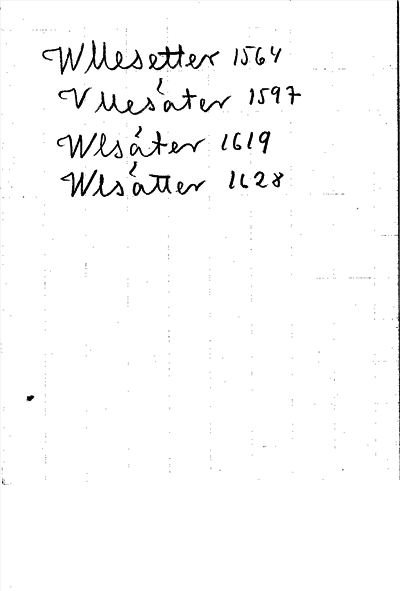 Wllesetter 1564
Vllesáter 1597
Wlsáter 1619
Wlsátter 1628